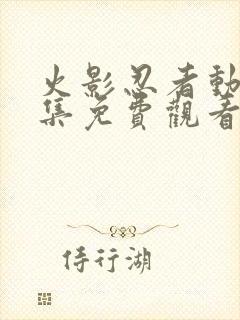 火影忍者動
集免費觀看
侍行湖